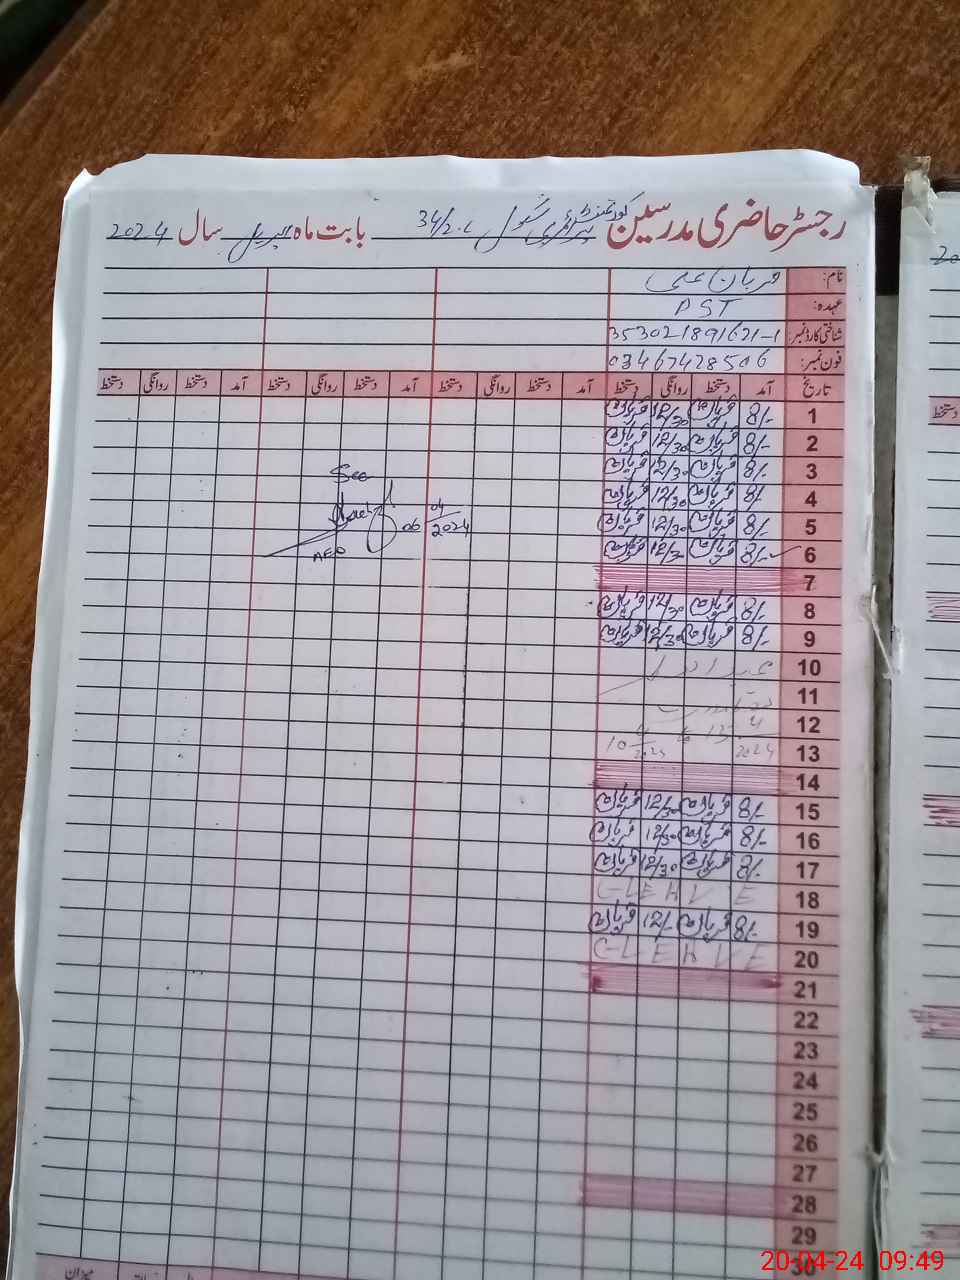 رجسٹر حاضری مدرسین گورنمنٹ پرائمری سکول 34/2.L بابت ماہ اپریل سال 2024
نام: قربان علی
عہدہ: PST
شناختی کارڈ نمبر: 353021891671-1
فون نمبر: 03467428506
تاریخ آمد دستخط روانگی دستخط آمد دستخط روانگی دستخط آمد دستخط روانگی دستخط
1 8/- قربان 12/30 قربان
2 8/- قربان 12/30 قربان
3 8/- قربان 12/30 قربان
See
4 8/- قربان 12/30 قربان
5 8/- قربان 12/30 قربان
06 04/2024
AEO
6 8/- قربان 12/30 قربان
7
8 8/- قربان 12/30 قربان
9 8/- قربان 12/30 قربان
10
11
12
13
10 4/2024 to 13 4/2024
14
15 8/- قربان 12/30 قربان
16 8/- قربان 12/30 قربان
17 8/- قربان 12/30 قربان
18 C-LEAVE
19 8/- قربان 12/- قربان
20 C-LEAVE
21
22
23
24
25
26
27
28
29
30
میزان
دستخط
20-04-24 09:49